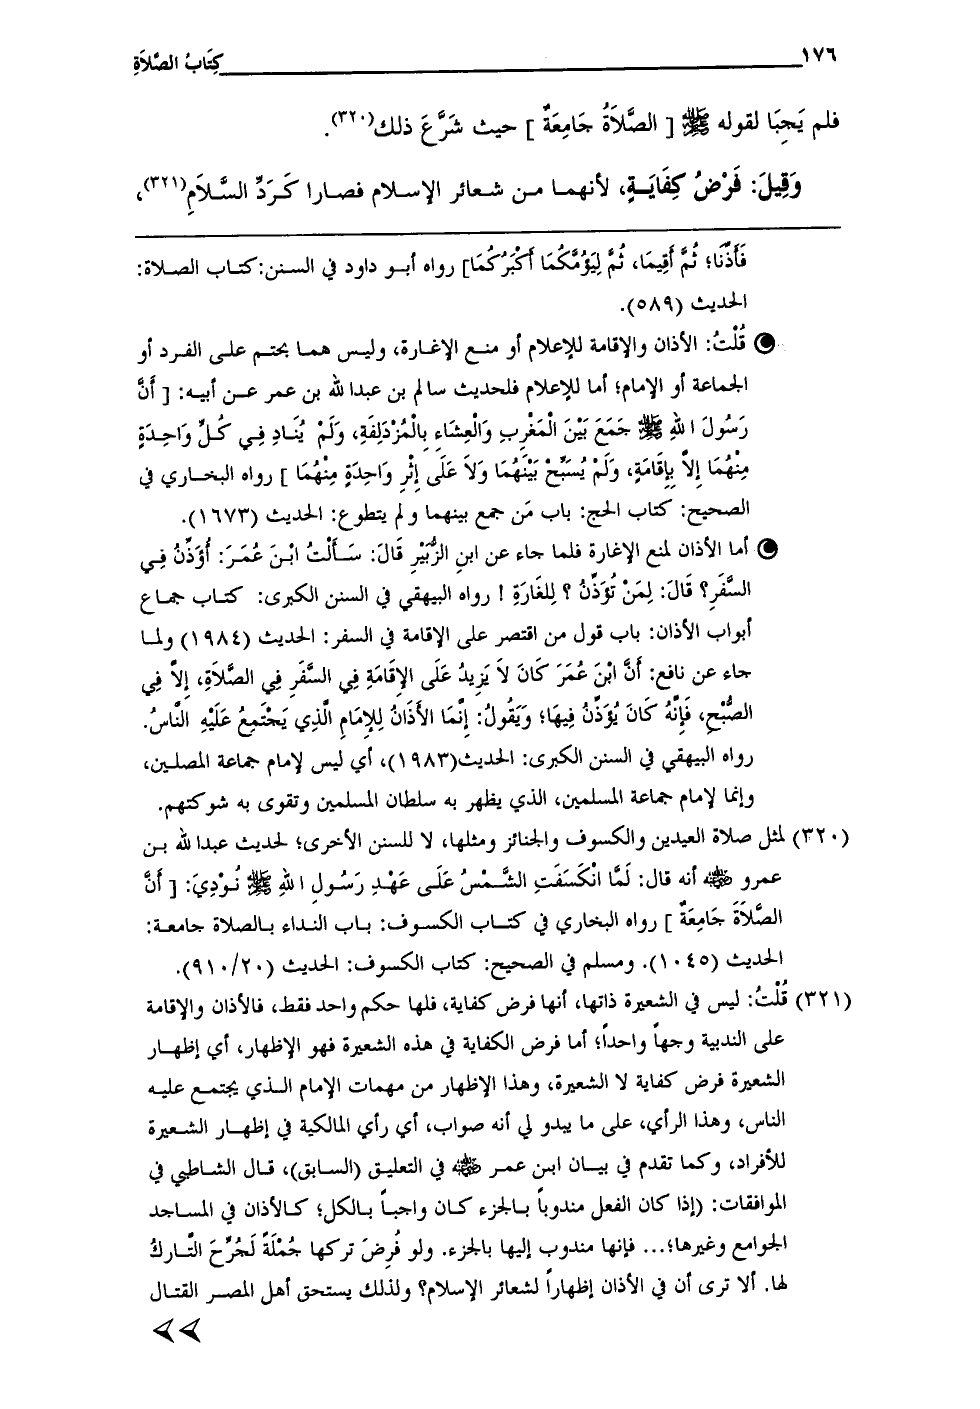 ١٧٦ كِتَابُ الصَّلاَةِ
فلم يَجِبَا لقوله ﷺ [ الصَّلاَةُ جَامِعَةٌ ] حيث شَرَّعَ ذلك(٣٢٠).
وَقِيلَ: فَرْضُ كِفَايَةٍ، لأنهما من شعائر الإسلام فصارا كَرَدِّ السَّلاَمِ(٣٢١)،
فَأَذِّنَا؛ ثُمَّ أَقِيمَا، ثُمَّ لِيَؤُمَّكُمَا أَكْبَرُكُمَا] رواه أبو داود في السنن:كتاب الصلاة:
الحديث (٥٨٩).
قُلْتُ: الأذان والإقامة للإعلام أو منع الإغارة، وليس هما يحتم على الفرد أو
الجماعة أو الإمام؛ أما للإعلام فلحديث سالم بن عبدالله بن عمر عن أبيه: [ أَنَّ
رَسُولَ اللهِ ﷺ جَمَعَ بَيْنَ الْمَغْرِبِ وَالْعِشَاءِ بِالْمُزْدَلِفَةِ، وَلَمْ يُنَادِ فِي كُلِّ وَاحِدَةٍ
مِنْهُمَا إِلاَّ بِإِقَامَةٍ، وَلَمْ يُسَبِّحْ بَيْنَهُمَا وَلاَ عَلَى إِثْرِ وَاحِدَةٍ مِنْهُمَا ] رواه البخاري في
الصحيح: كتاب الحج: باب مَن جمع بينهما ولم يتطوع: الحديث (١٦٧٣).
أما الأذان لمنع الإغارة فلما جاء عن ابنِ الزُّبَيْرِ قَالَ: سَأَلْتُ ابْنَ عُمَرَ: أُؤَذِّنُ فِي
السَّفَرِ؟ قَالَ: لِمَنْ تُؤَذِّنُ ؟ لِلغَارَةِ ! رواه البيهقي في السنن الكبرى: كتاب جماع
أبواب الأذان: باب قول من اقتصر على الإقامة في السفر: الحديث (١٩٨٤) ولما
جاء عن نافع: أَنَّ ابْنَ عُمَرَ كَانَ لاَ يَزِيدُ عَلَى الإِقَامَةِ فِي السَّفَرِ فِي الصَّلاَةِ، إِلاَّ فِي
الصُّبْحِ، فَإِنَّهُ كَانَ يُؤَذِّنُ فِيهَا؛ وَيَقُولُ: إِنَّمَا الأَذَانُ لِلإِمَامِ الَّذِي يَجْتَمِعُ عَلَيْهِ النَّاسُ.
رواه البيهقي في السنن الكبرى: الحديث(١٩٨٣)، أي ليس لإمام جماعة المصلين،
وإنما لإمام جماعة المسلمين، الذي يظهر به سلطان المسلمين وتقوى به شوكتهم.
(٣٢٠) لمثل صلاة العيدين والكسوف والجنائز ومثلها، لا للسنن الأخرى؛ لحديث عبدالله بن
عمرو ﷺ أنه قال: لَمَّا انْكَسَفَتِ الشَّمْسُ عَلَى عَهْدِ رَسُولِ اللهِ ﷺ نُودِيَ: [ أَنَّ
الصَّلاَةَ جَامِعَةٌ ] رواه البخاري في كتاب الكسوف: باب النداء بالصلاة جامعة:
الحديث (١٠٤٥). ومسلم في الصحيح: كتاب الكسوف: الحديث (٩١٠/٢٠).
(٣٢١) قُلْتُ: ليس في الشعيرة ذاتها، أنها فرض كفاية، فلها حكم واحد فقط، فالأذان والإقامة
على الندبية وجهاً واحداً؛ أما فرض الكفاية في هذه الشعيرة فهو الإظهار، أي إظهار
الشعيرة فرض كفاية لا الشعيرة، وهذا الإظهار من مهمات الإمام الذي يجتمع عليه
الناس، وهذا الرأي، على ما يبدو لي أنه صواب، أي رأي المالكية في إظهار الشعيرة
للأفراد، وكما تقدم في بيان ابن عمر ﷺ في التعليق (السابق)، قال الشاطبي في
الموافقات: (إذا كان الفعل مندوباً بالجزء كان واجباً بالكل؛ كالأذان في المساجد
الجوامع وغيرها؛... فإنها مندوب إليها بالجزء. ولو فُرِضَ تركها جُمْلَةً لَجُرِّحَ التَّارِكُ
لها. ألا ترى أن في الأذان إظهاراً لشعائر الإسلام؟ ولذلك يستحق أهل المصر القتال